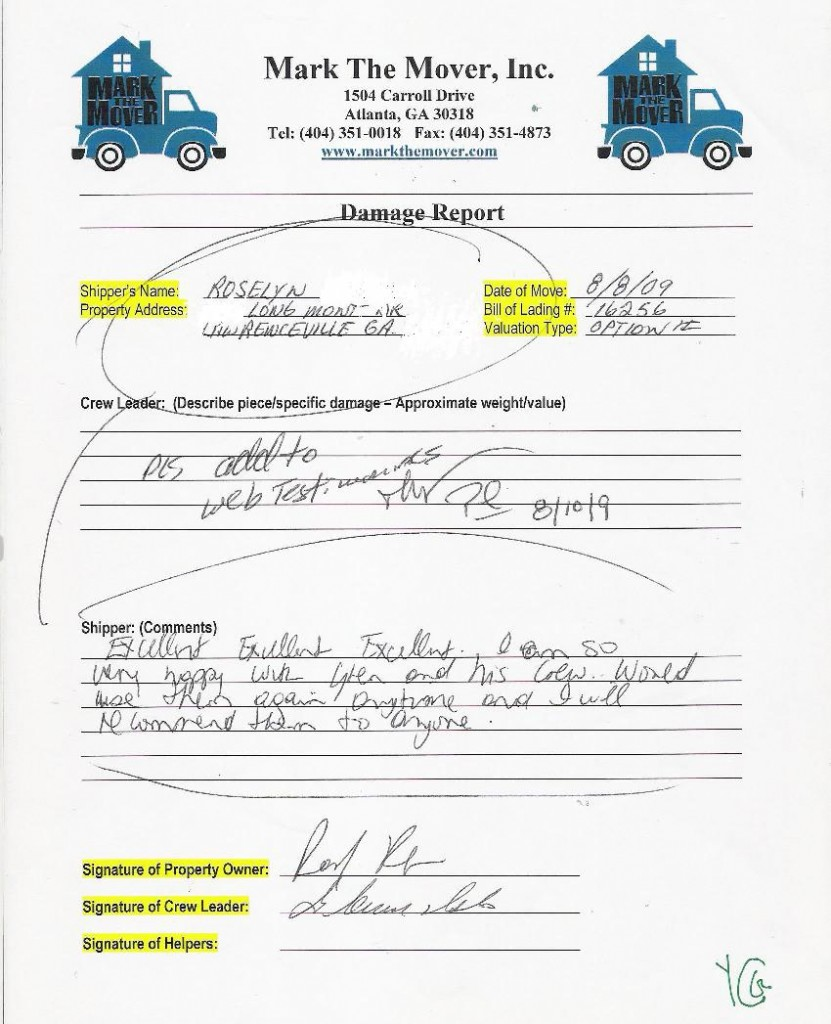 MARK
THE
MOVER
Mark The Mover, Inc.
1504 Carroll Drive
Atlanta, GA 30318
Tel: (404) 351-0018 Fax: (404) 351-4873
www.markthemover.com
MARK
THE
MOVER
Damage Report
Shipper's Name: ROSELYN
Date of Move: 8/8/09
Property Address: LONG MONT
Bill of Lading #: 16256
LAWRENCEVILLE GA.
Valuation Type: OPTION II
Crew Leader: (Describe piece/specific damage – Approximate weight/value)
Pls add to
web Testimonials
8/10/9
Shipper: (Comments)
Excellent Excellent Excellent. I am so
very happy with and his Crew. Would
use them again anytime and I will
recommend them to anyone.
Signature of Property Owner:
Signature of Crew Leader:
Signature of Helpers: